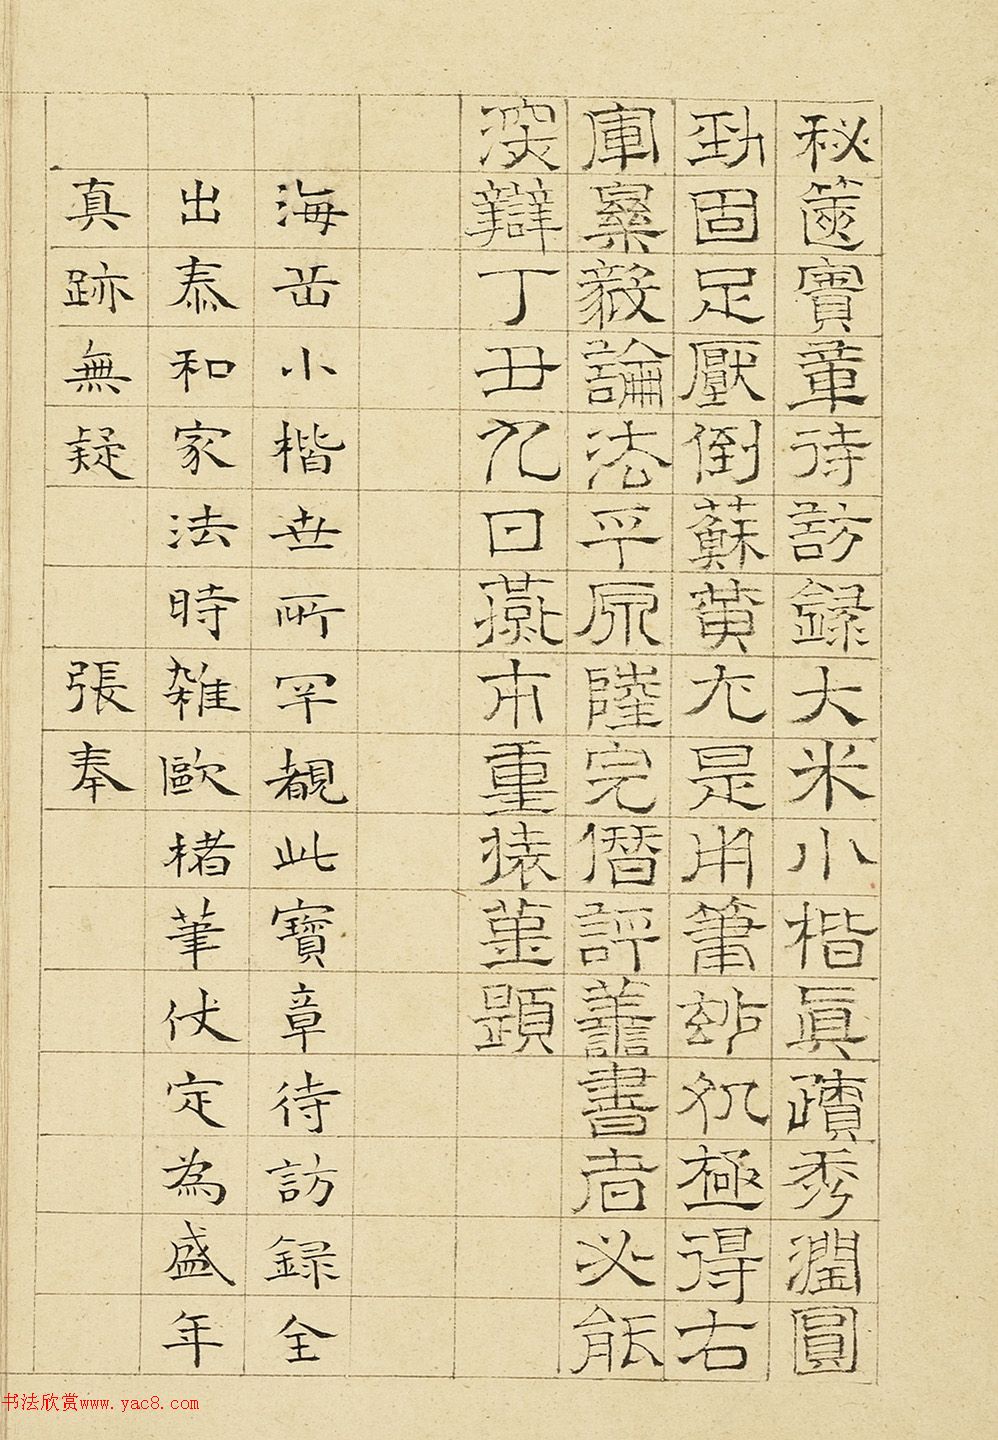 秘篋寶章待訪録大米小楷眞蹟秀潤圓
勁固足壓倒蘇黄尤是用筆玅処極得右
軍樂毅論法平原陸完僭評善書者必能
深辯丁丑九日燕市重装並題
海岳小楷世所罕覩此寶章待訪録全
出泰和家法時雜歐楮筆伏定為盛年
真跡無疑 張奉
书法欣赏www.yac8.com